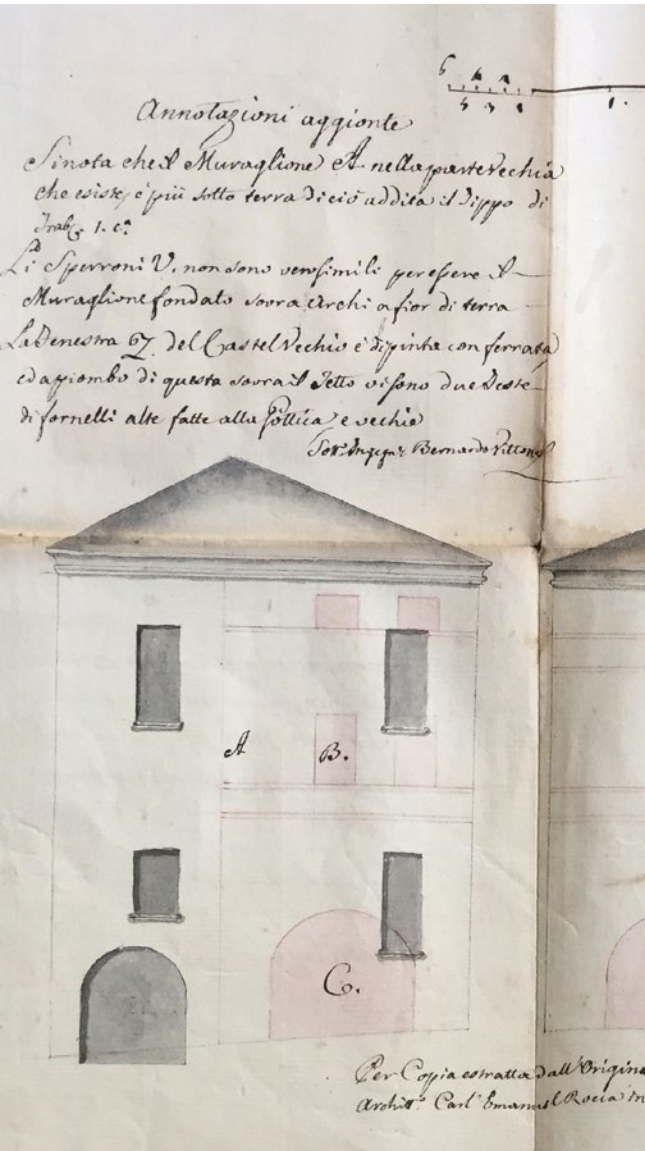 6 4 2
5 3 1 1.
Annotazioni aggionte
Si nota che il Muraglione A. nella parte Vecchia
che esiste, è più sotto terra di ciò addita il Tippo di
Trab. 1. c.ª
Li Speroni V. non sono verosimili per essere il
Muraglione fondato sovra Archi a fior di terra
La Fenestra del Castel Vechio è dipinta con ferrata
ed a piombo di questa sovra il Tetto vi sono due Teste
di fornelli alte fatte alla Gottica e vechie
Sott.º Ingegn.e Bernardo Vittone
A B.
C.
Per Copia estratta dall'Origina
Archit.º Carl' Emanuel Rocia in